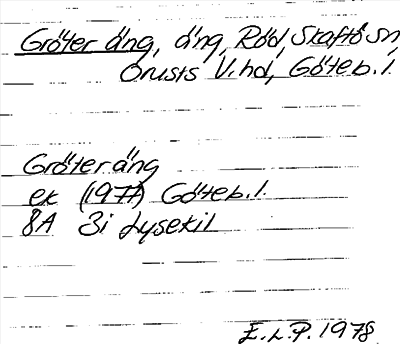 Gröteräng, äng, Röd, Skaftö sn,
Orusts V. hd, Göteb. l.
Gröteräng
ek (1977) Göteb. l.
8A 3i Lysekil
E.L.P. 1978